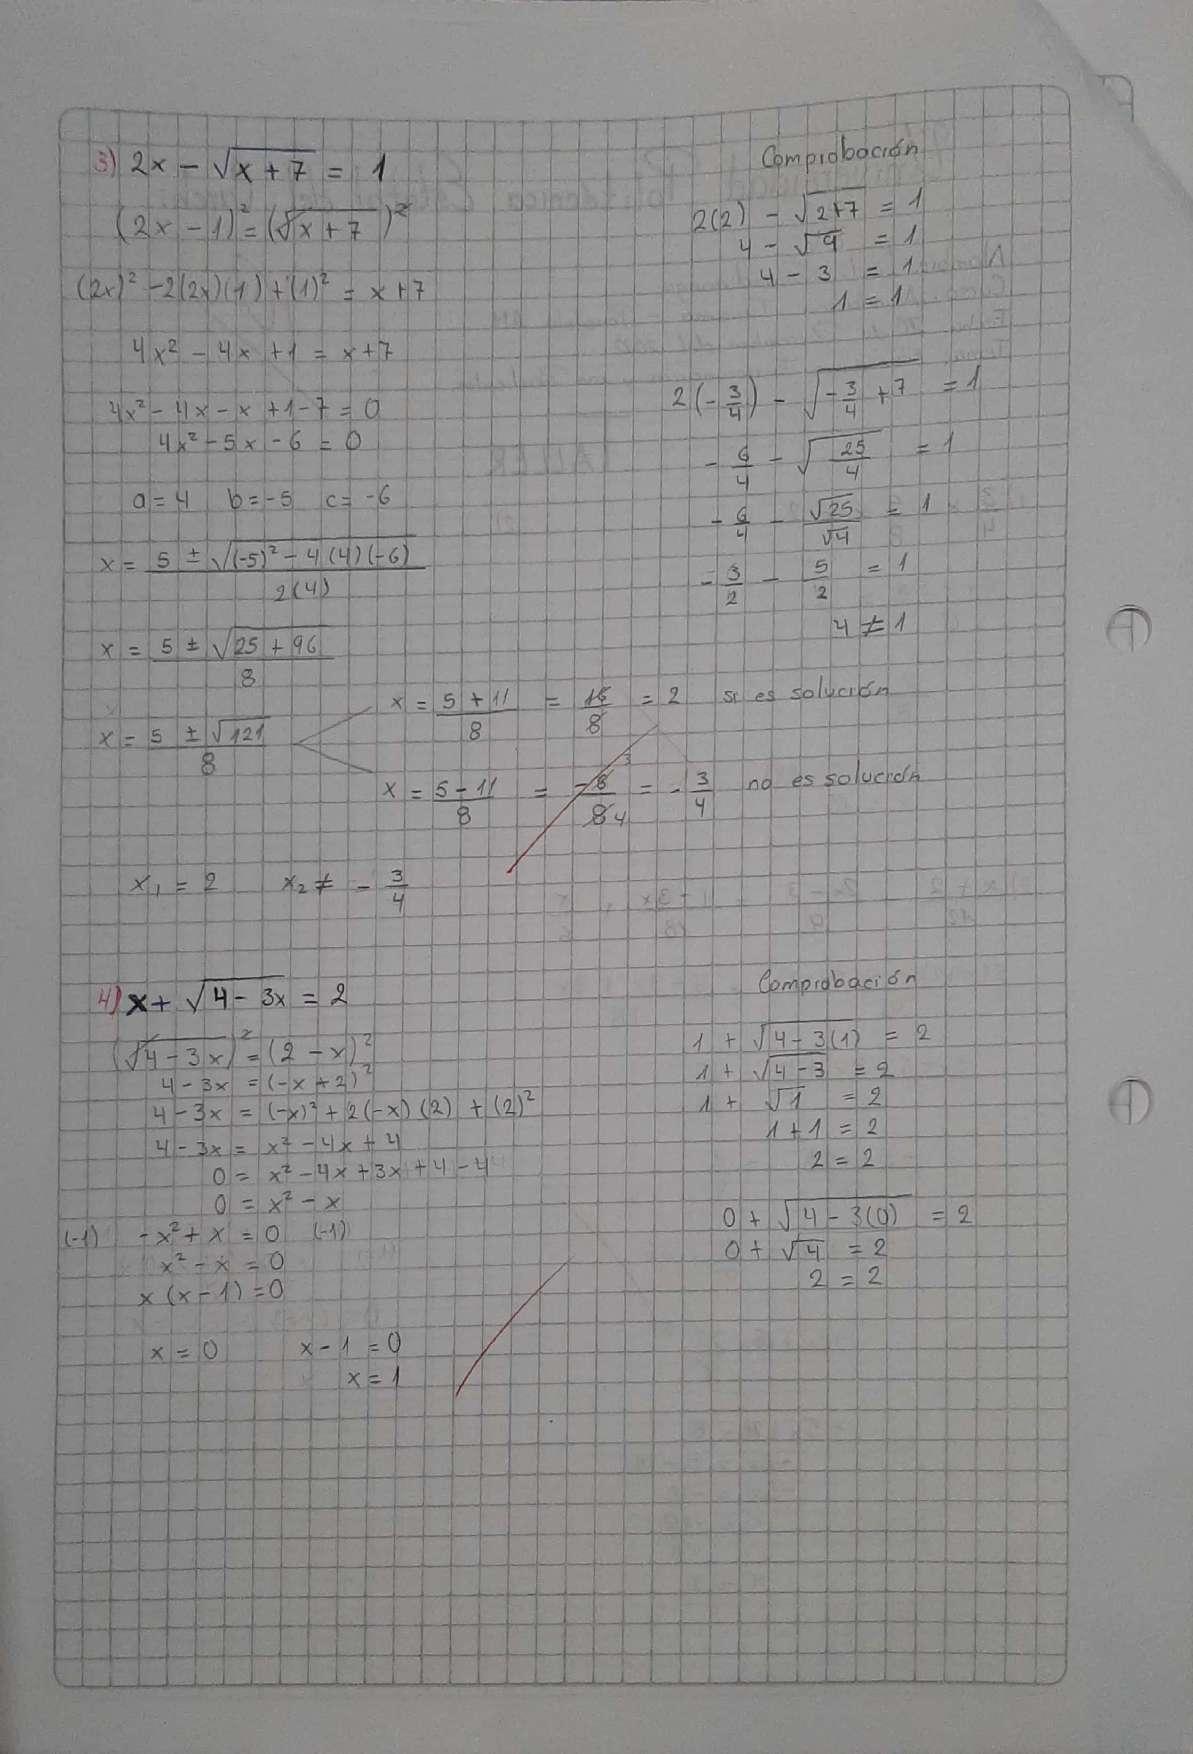 3) 2x - √(x + 7) = 1
(2x - 1)² = (√(x + 7))²
(2x)² - 2(2x)(1) + (1)² = x + 7
4x² - 4x + 1 = x + 7
4x² - 4x - x + 1 - 7 = 0
4x² - 5x - 6 = 0
a = 4 b = -5 c = -6
x = (5 ± √((-5)² - 4(4)(-6))) / 2(4)
x = (5 ± √(25 + 96)) / 8
x = (5 ± √121) / 8
x = (5 + 11) / 8 = 16/8 = 2 si es solución
x = (5 - 11) / 8 = -6/8 3 4 = -3/4 no es solución
x₁ = 2 x₂ ≠ -3/4
Comprobación
2(2) - √(2+7) = 1
4 - √9 = 1
4 - 3 = 1
1 = 1
2(-3/4) - √(-3/4 + 7) = 1
-6/4 - √(25/4) = 1
-6/4 - √25/√4 = 1
-3/2 - 5/2 = 1
4 ≠ 1
4) x + √(4 - 3x) = 2
(√(4 - 3x))² = (2 - x)²
4 - 3x = (-x + 2)²
4 - 3x = (-x)² + 2(-x)(2) + (2)²
4 - 3x = x² - 4x + 4
0 = x² - 4x + 3x + 4 - 4
0 = x² - x
(-1) -x² + x = 0 (-1)
x² - x = 0
x(x - 1) = 0
x = 0 x - 1 = 0
x = 1
Comprobación
1 + √(4 - 3(1)) = 2
1 + √(4 - 3) = 2
1 + √1 = 2
1 + 1 = 2
2 = 2
0 + √(4 - 3(0)) = 2
0 + √4 = 2
2 = 2